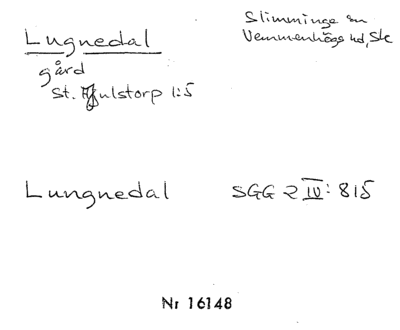 Lugnedal
gård
St. Hjulstorp 1:5
Slimminge sn
Vemmenhögs hd, Sk
Lungnedal
SGG 2 IV: 815
Nr 16148